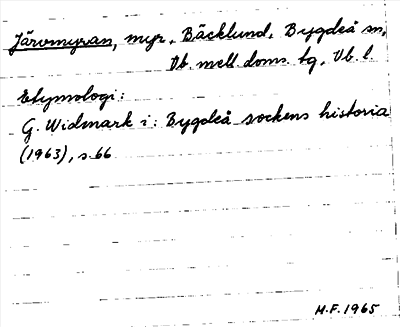 Järvmyran, myr, Bäcklund, Bygdeå sn,
Vb. mell. doms. tg, Vb. l.
Etymologi:
G. Widmark i: Bygdeå sockens historia
(1963), s. 66
H.F. 1965